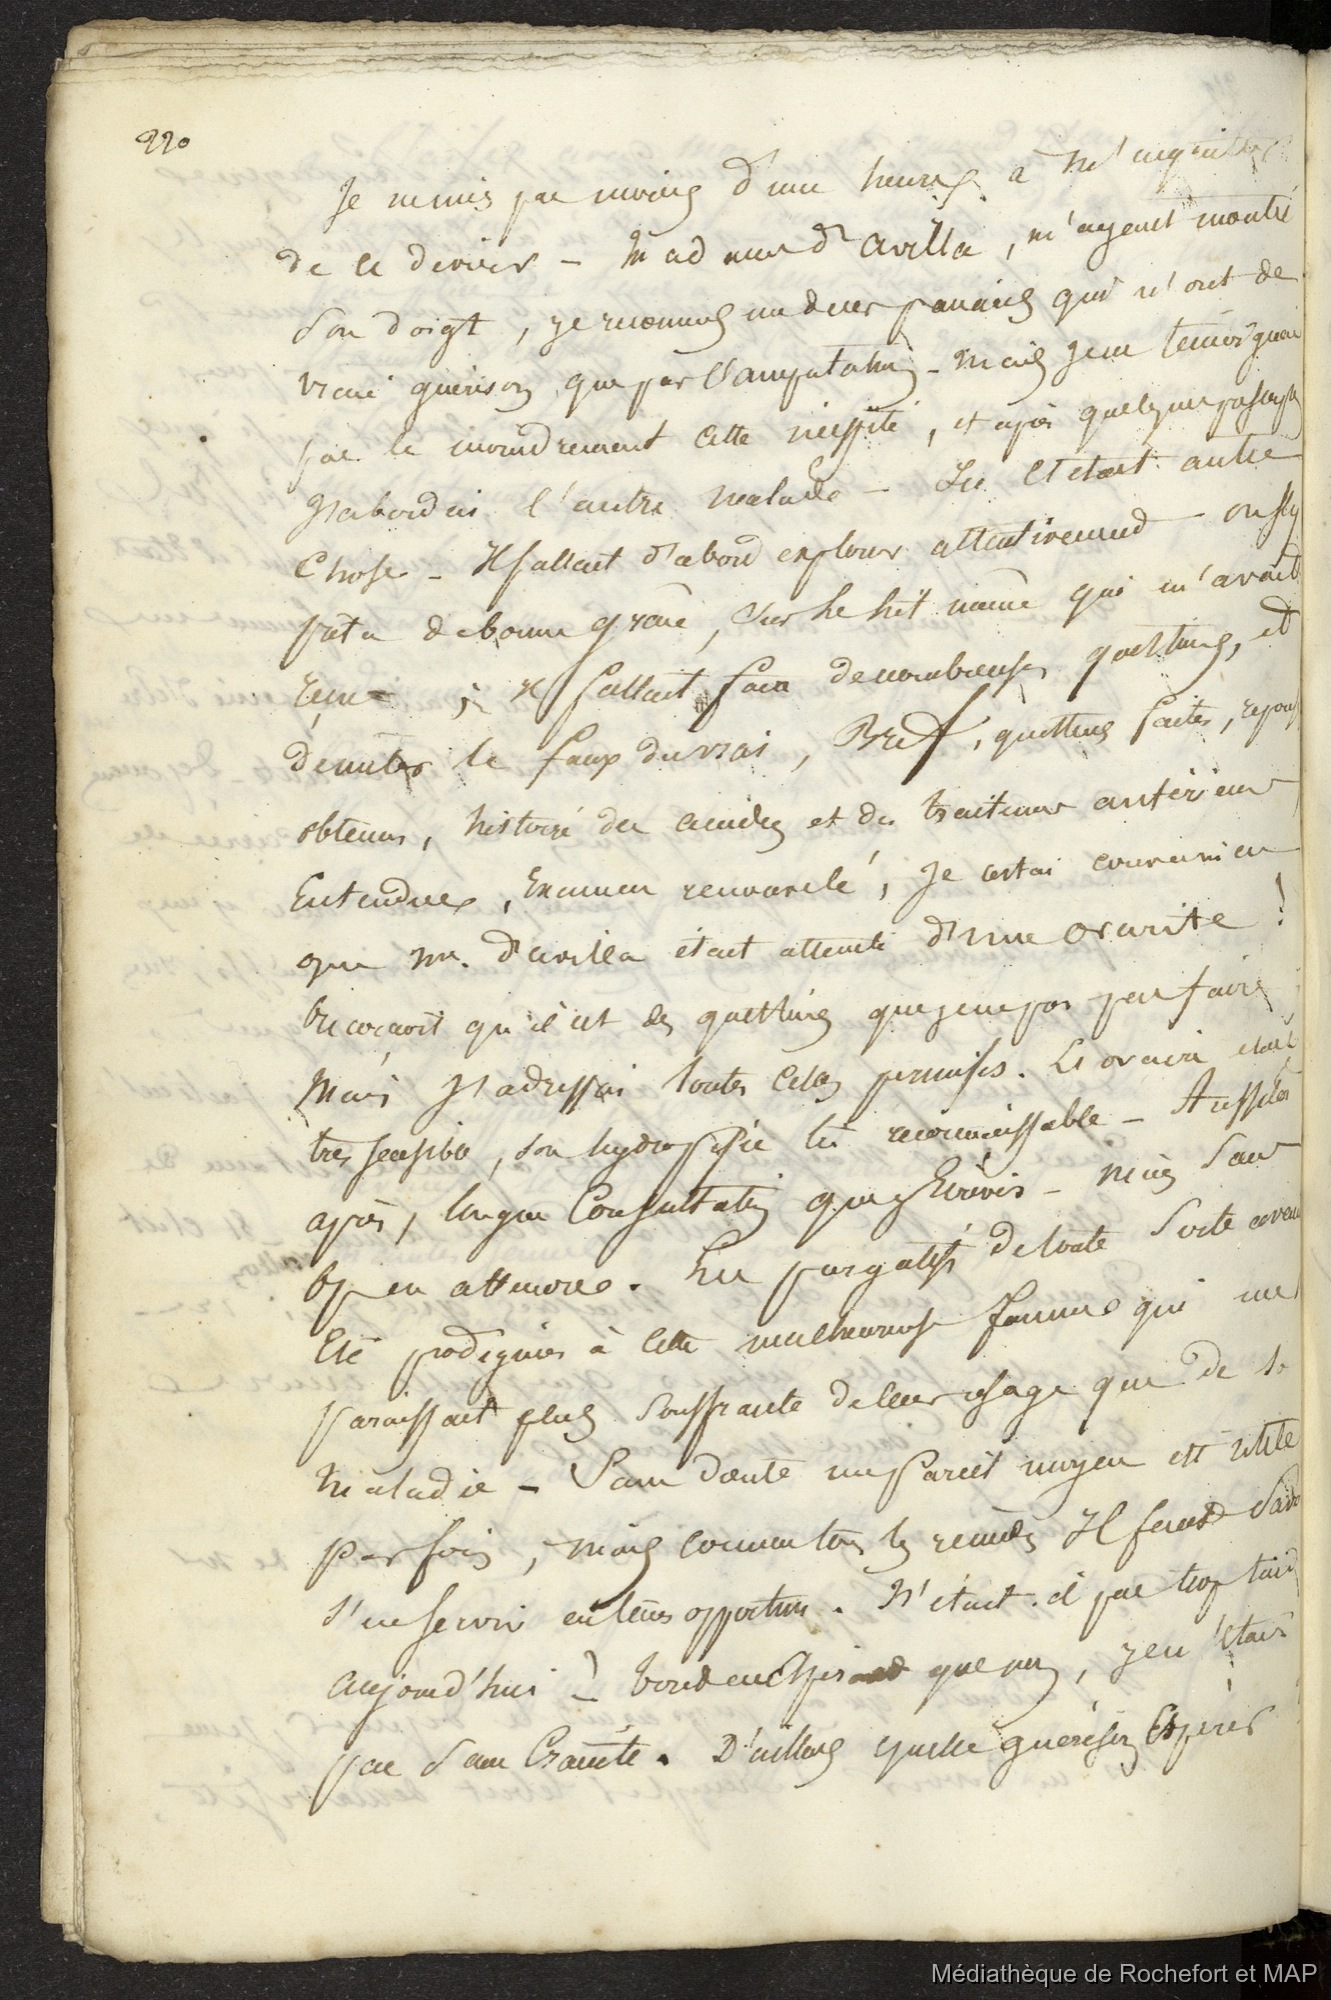 220
Je ne mis pas moins d'une heure à m'
de le deviner - Madame d'Avilla, m'ayant montré
son doigt, je reconnus un panaris qui n'ont de
vraie guérison que par l'amputation - mais je ne témoignai
pas le moindrement cette nécessité, et après quelques
j'abordai l'autre malade - Ici c'était autre
chose - Il fallait d'abord explorer attentivement - on s'y
prêta de bonne grâce, sur le lit même qui m'avait
reçu ; il fallait faire de nombreuses questions, et
démêler le faux du vrai, Bref, questions faites,
obtenues, histoire des accidens et des traitemens antérieurs
entendue, examen renouvelé, je restai convaincu
que Me. d'avilla était atteinte d'une ovarite !
qu'il est des questions que je ne pus pas faire
mais j'adressai toutes celles permises. L'ovaire était
très sensible, son hydropisie très reconnaissable - Aussitôt
après, longue Consultation que j'écrivis - mais sans
en attendre. Les purgatifs de toute sorte avaient
été prodigués à cette malheureuse femme qui me
paraissait plus souffrante de leur usage que de sa
maladie - Sans doute un pareil moyen est utile
parfois, mais comme tous les remèdes il faut savoir
s'en servir en tems opportun. N'était-il pas trop tard
aujourd'hui ? tout en espérant que non, j'en étais
pas sans crainte. D'ailleurs quelle guérison espérer
Médiathèque de Rochefort et MAP